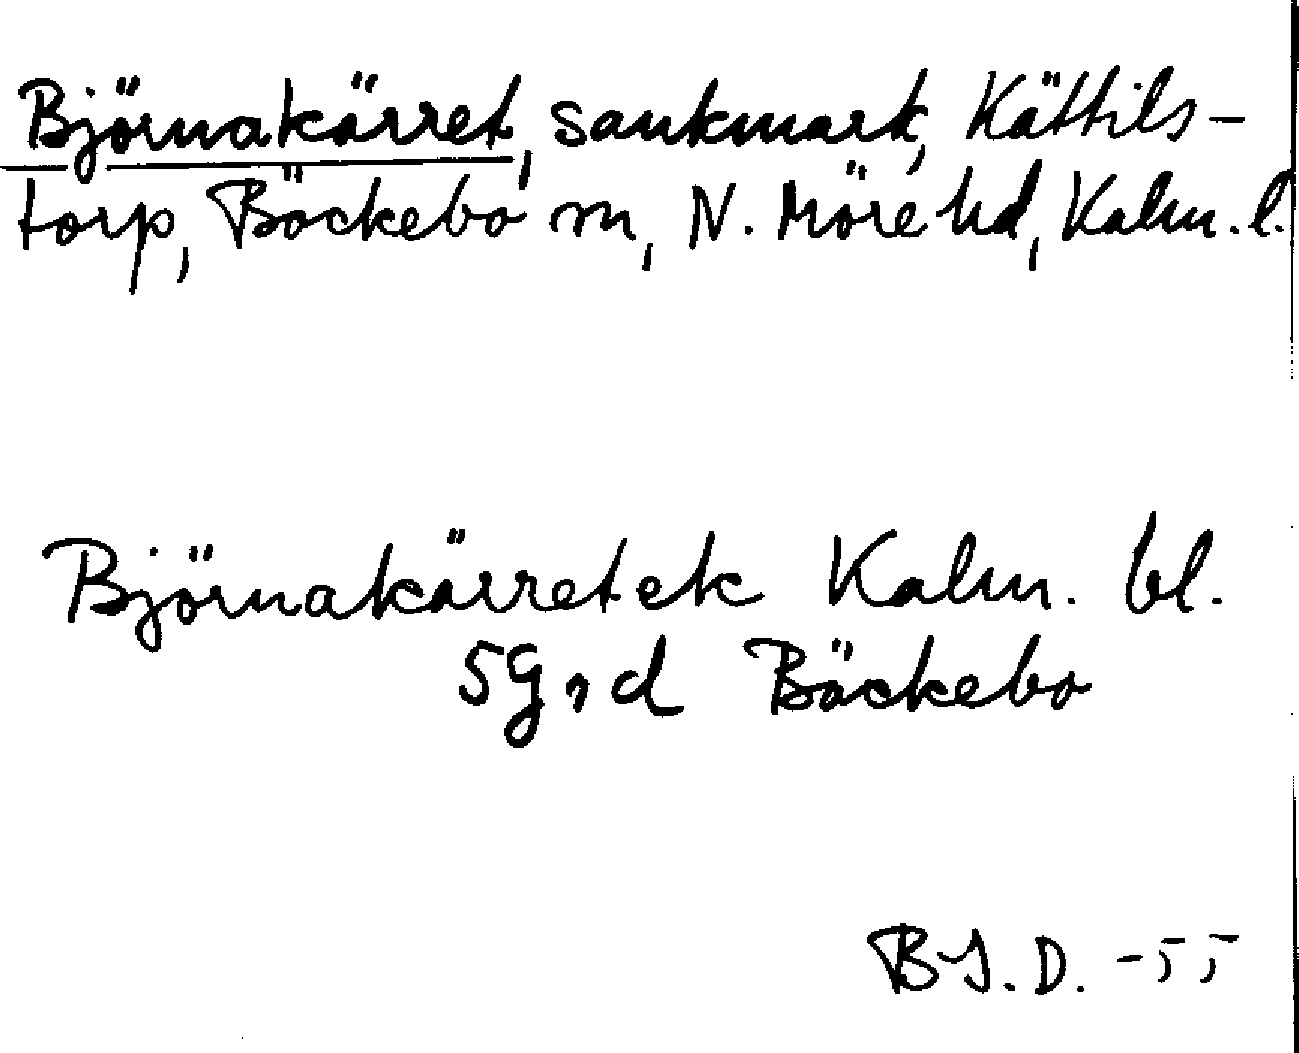 Björnakärret, sankmark, Kättils-
torp, Bäckebo sn, N. Möre hd, Kalm. l.
Björnakärret ek Kalm. bl.
5g, d Bäckebo
B-J. D. -55